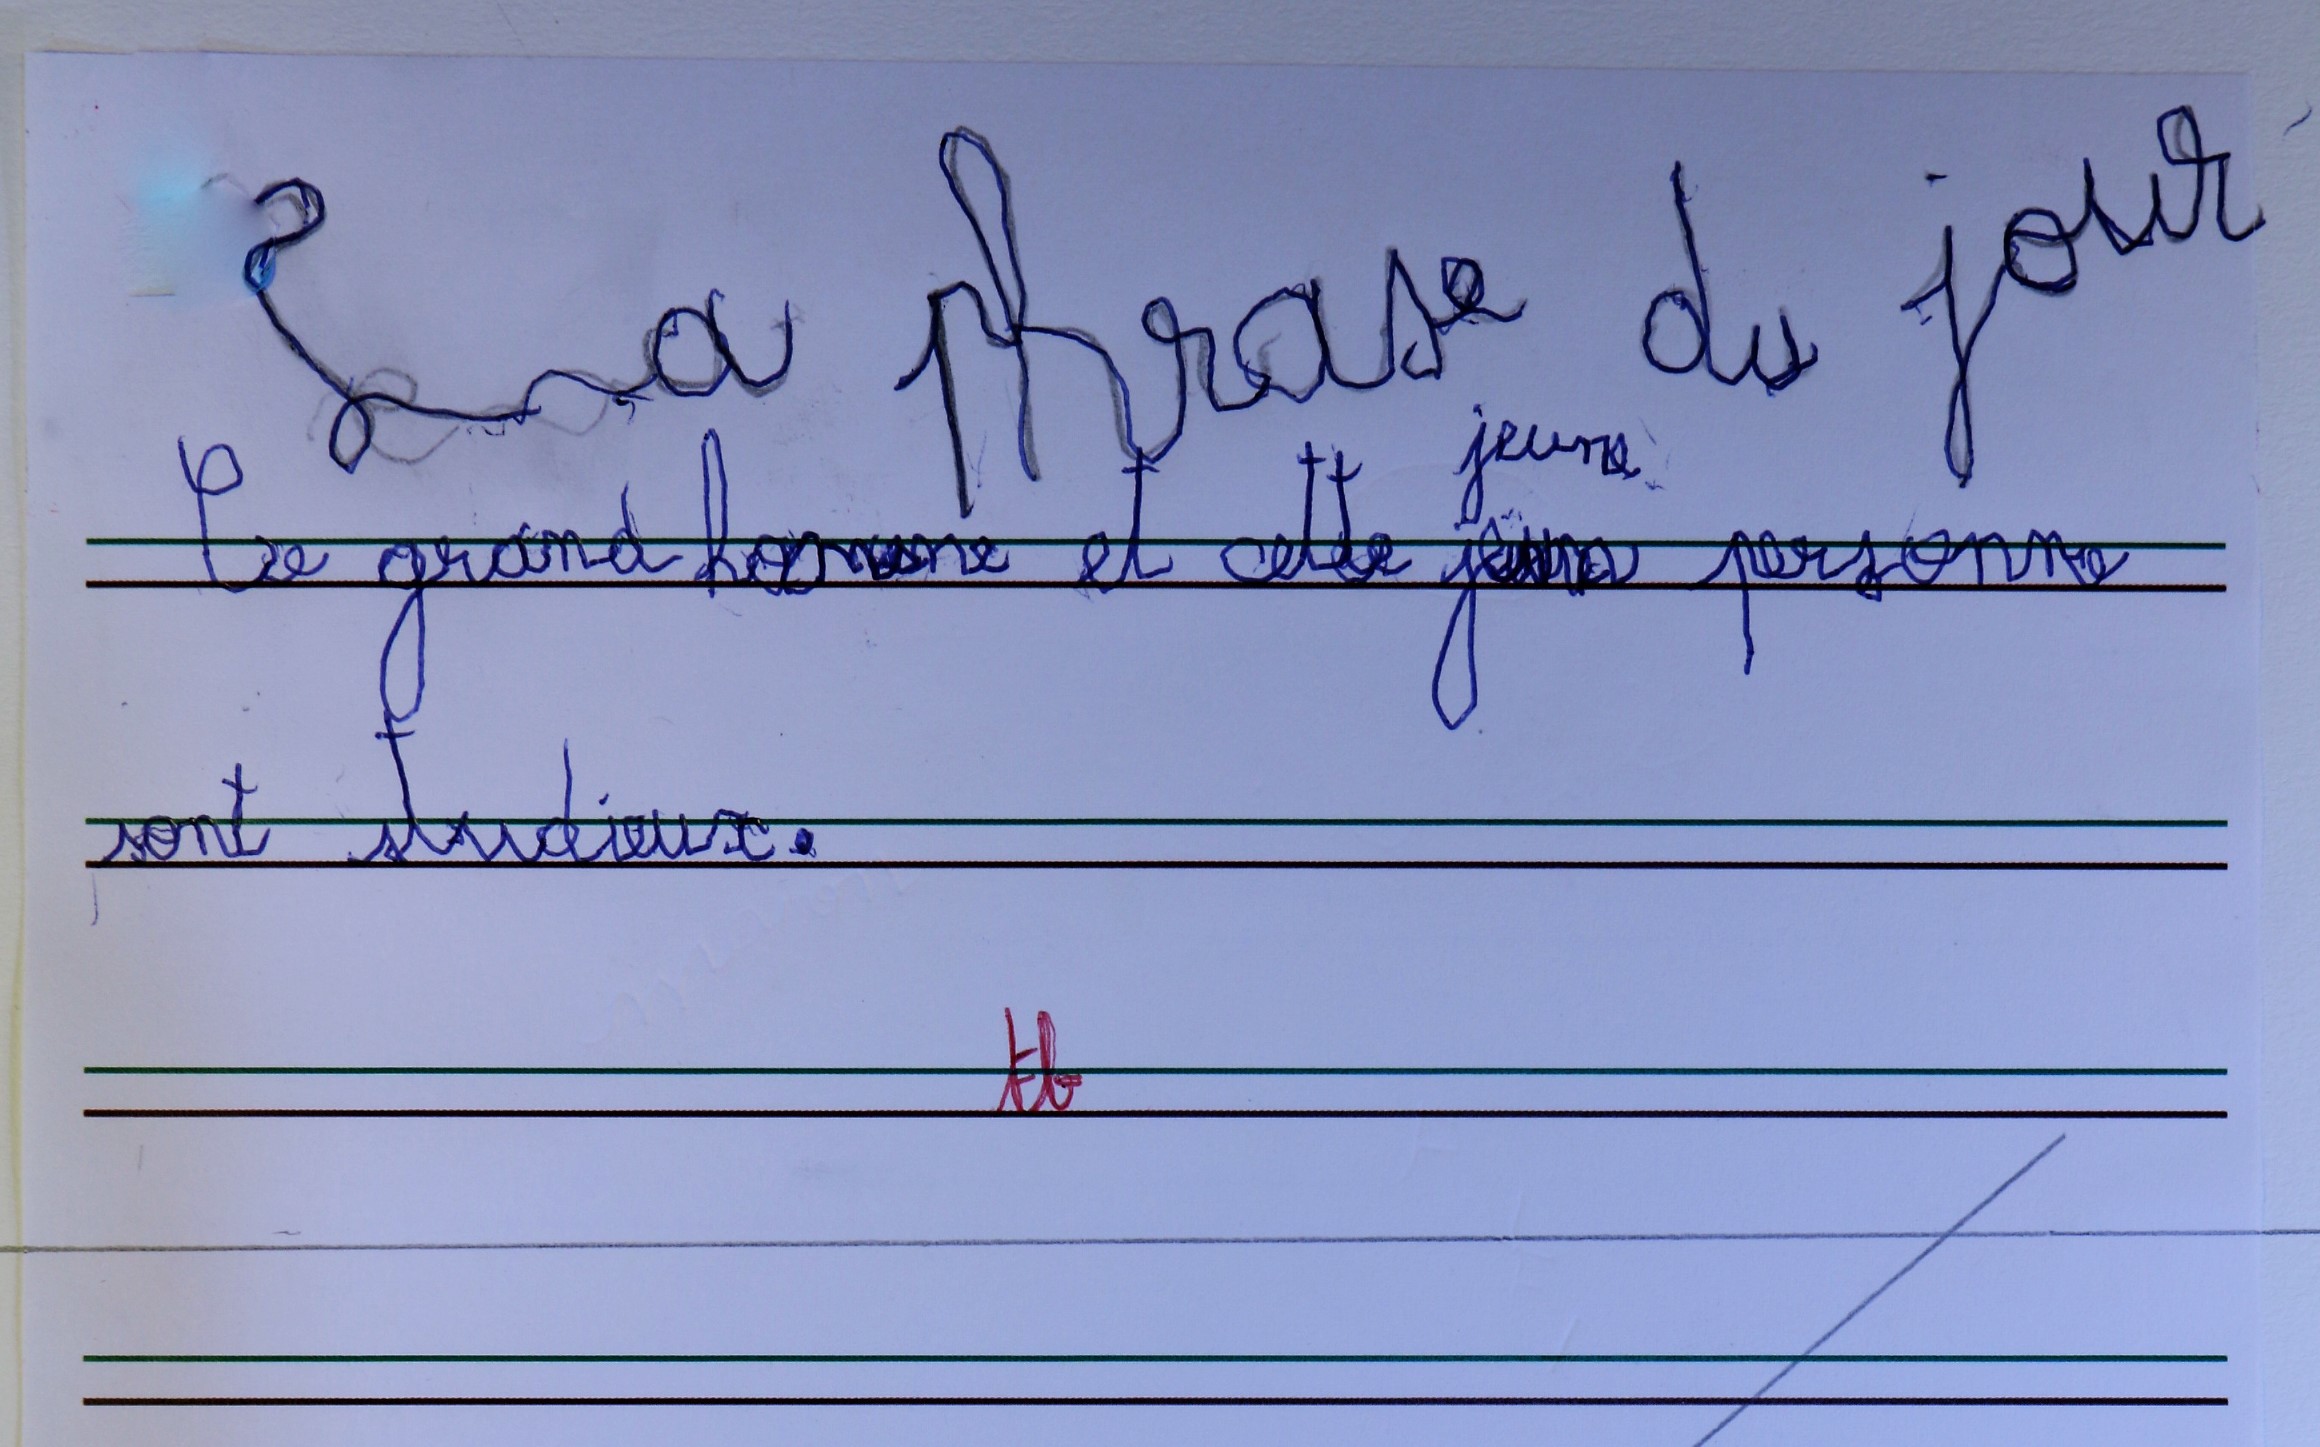 La phrase du jour
jeune
Ce grand homme et cette jeune personne
sont studieux.
tb